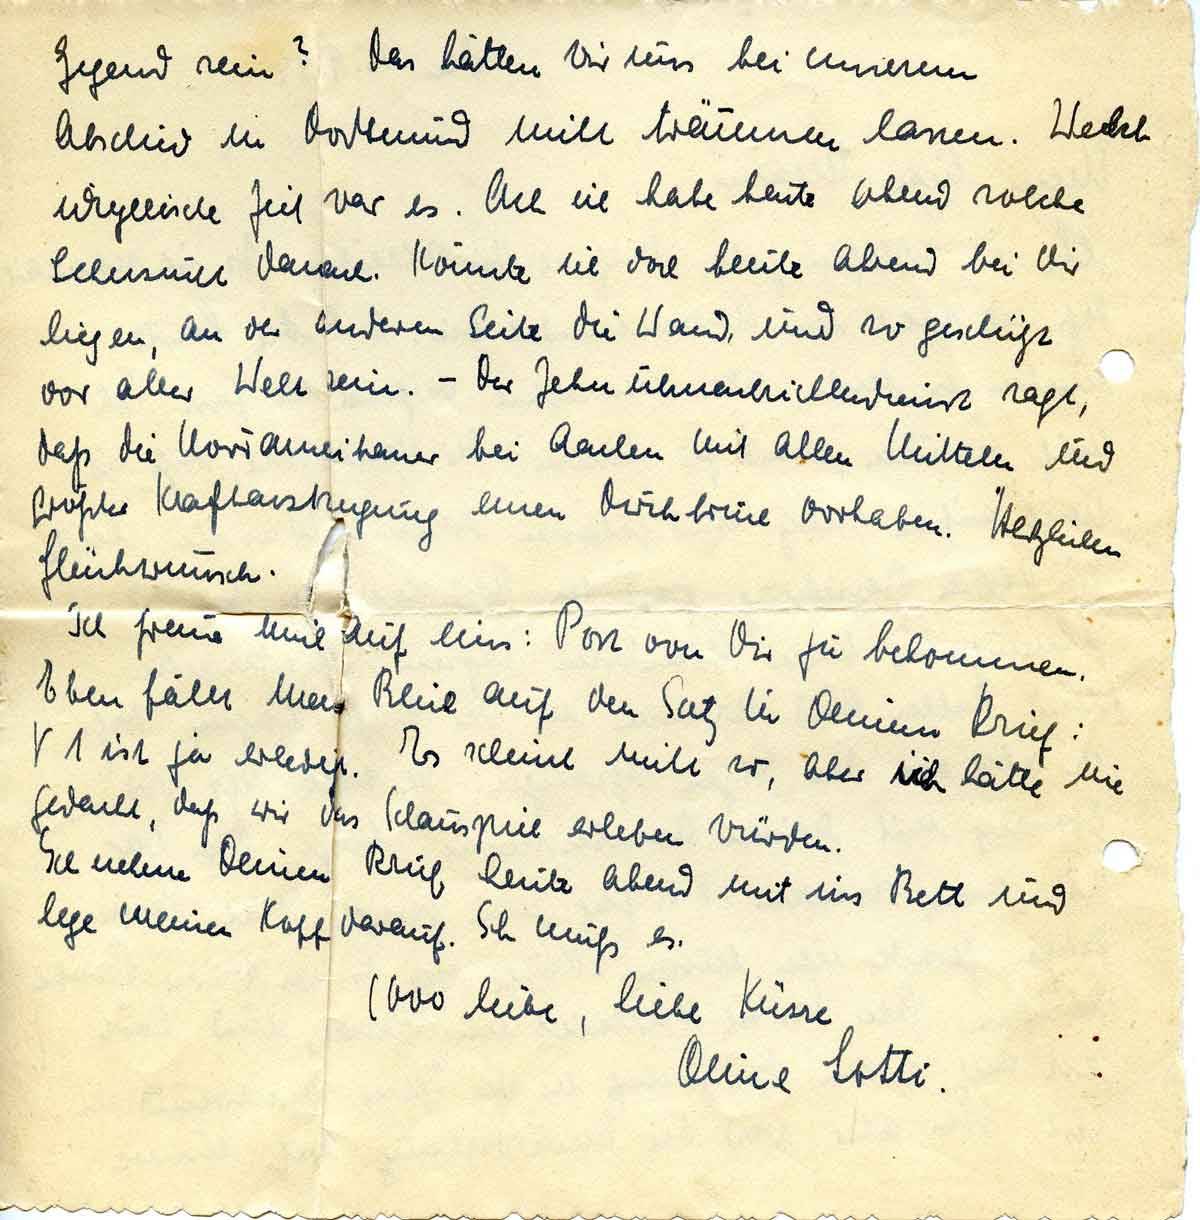 Gegend sein? Das hätten wir uns bei unserem
Abschied in Dortmund nicht träumen lassen. Welch
idyllische Zeit war es. Ach ich habe heute Abend solche
Sehnsucht danach. Könnte ich doch heute Abend bei Dir
liegen, an der anderen Seite die Wand, und so geschützt
vor aller Welt sein. – Der Zehnuhrnachrichtendienst sagt,
daß die Nordamerikaner bei Aachen mit allen Mitteln und
größter Kraftanstrengung einen Durchbruch vorhaben. Herzlichen
Glückwunsch.
Ich freue mich auf eins: Post von Dir zu bekommen.
Eben fällt mein Blick auf den Satz in Deinem Brief:
V 1 ist ja erledigt. Es scheint nicht so, aber ich hätte nie
gedacht, daß wir das Schauspiel erleben würden.
Ich nehme Deinen Brief heute Abend mit ins Bett und
lege meinen Kopf darauf. Ich muß es.
1000 liebe, liebe Küsse
Deine Lotti.